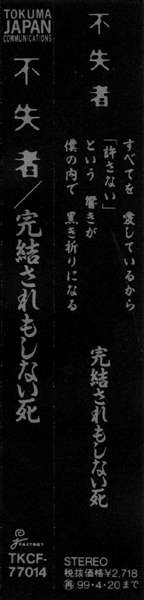 TOKUMA
JAPAN
COMMUNICATIONS
不失者／完結されもしない死
FACTORY
TKCF-
77014
不失者
すべてを 愛しているから
「許さない」
という 響きが
僕の内で 黒き祈りになる
完結されもしない死
STEREO
税抜価格¥2,718
再 99・4・20まで